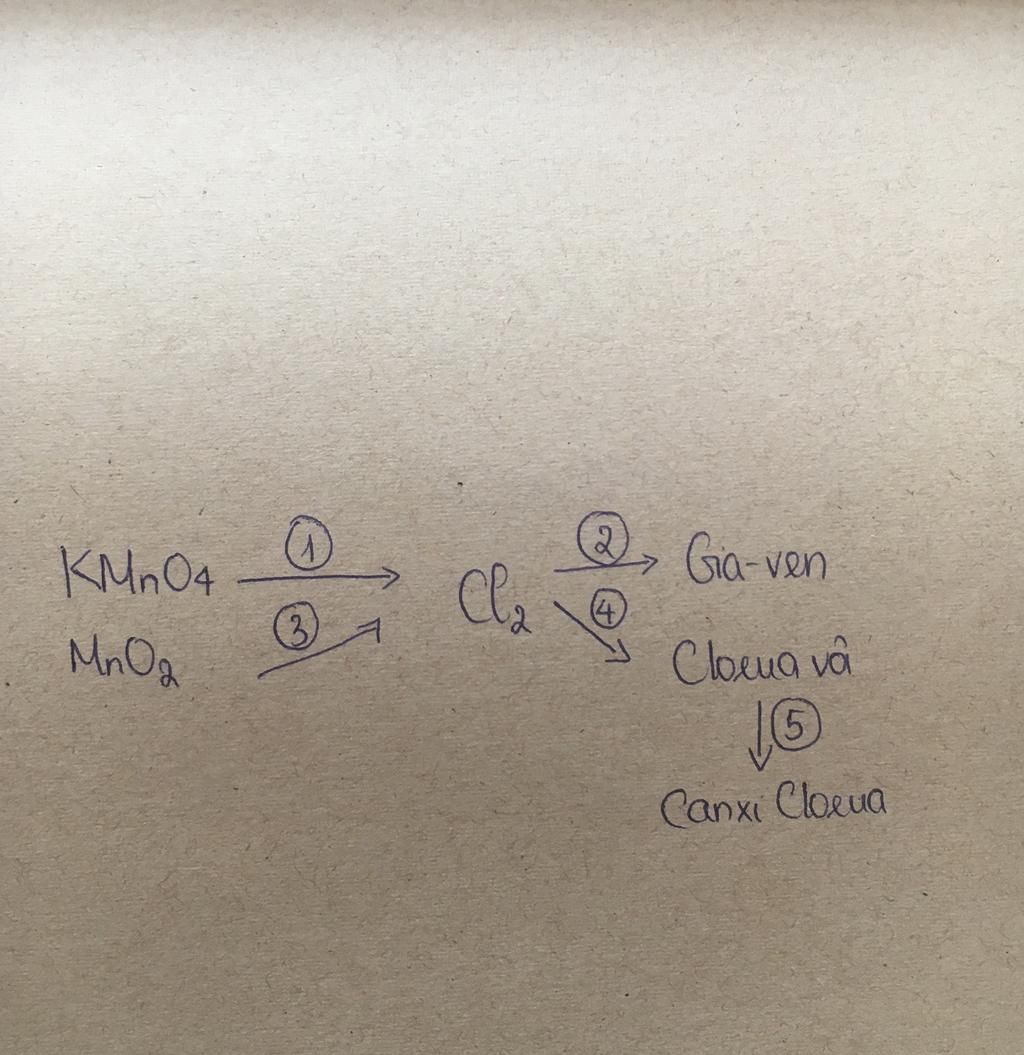 KMnO4 ① → Cl₂ ② → Gia-ven
MnO₂ ③ ↗ ④ ↘ Cloeua vâ
↓ ⑤
Canxi Cloeua